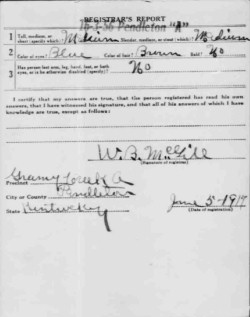 REGISTRAR'S REPORT
16-1-36 Pendleton "A"
1 Tall, medium, or short (specify which)? Medium Slender, medium, or stout (which)? Medium
2 Color of eyes? Blue Color of hair? Brown Bald? No
3 Has person lost arm, leg, hand, foot, or both eyes, or is he otherwise disabled (specify)? No
I certify that my answers are true, that the person registered has read his own answers, that I have witnessed his signature, and that all of his answers of which I have knowledge are true, except as follows:
W. B. McGill
(Signature of registrar)
Precinct Grassy Creek A
City or County Pendleton
State Kentucky
June 5-1917
(Date of registration)